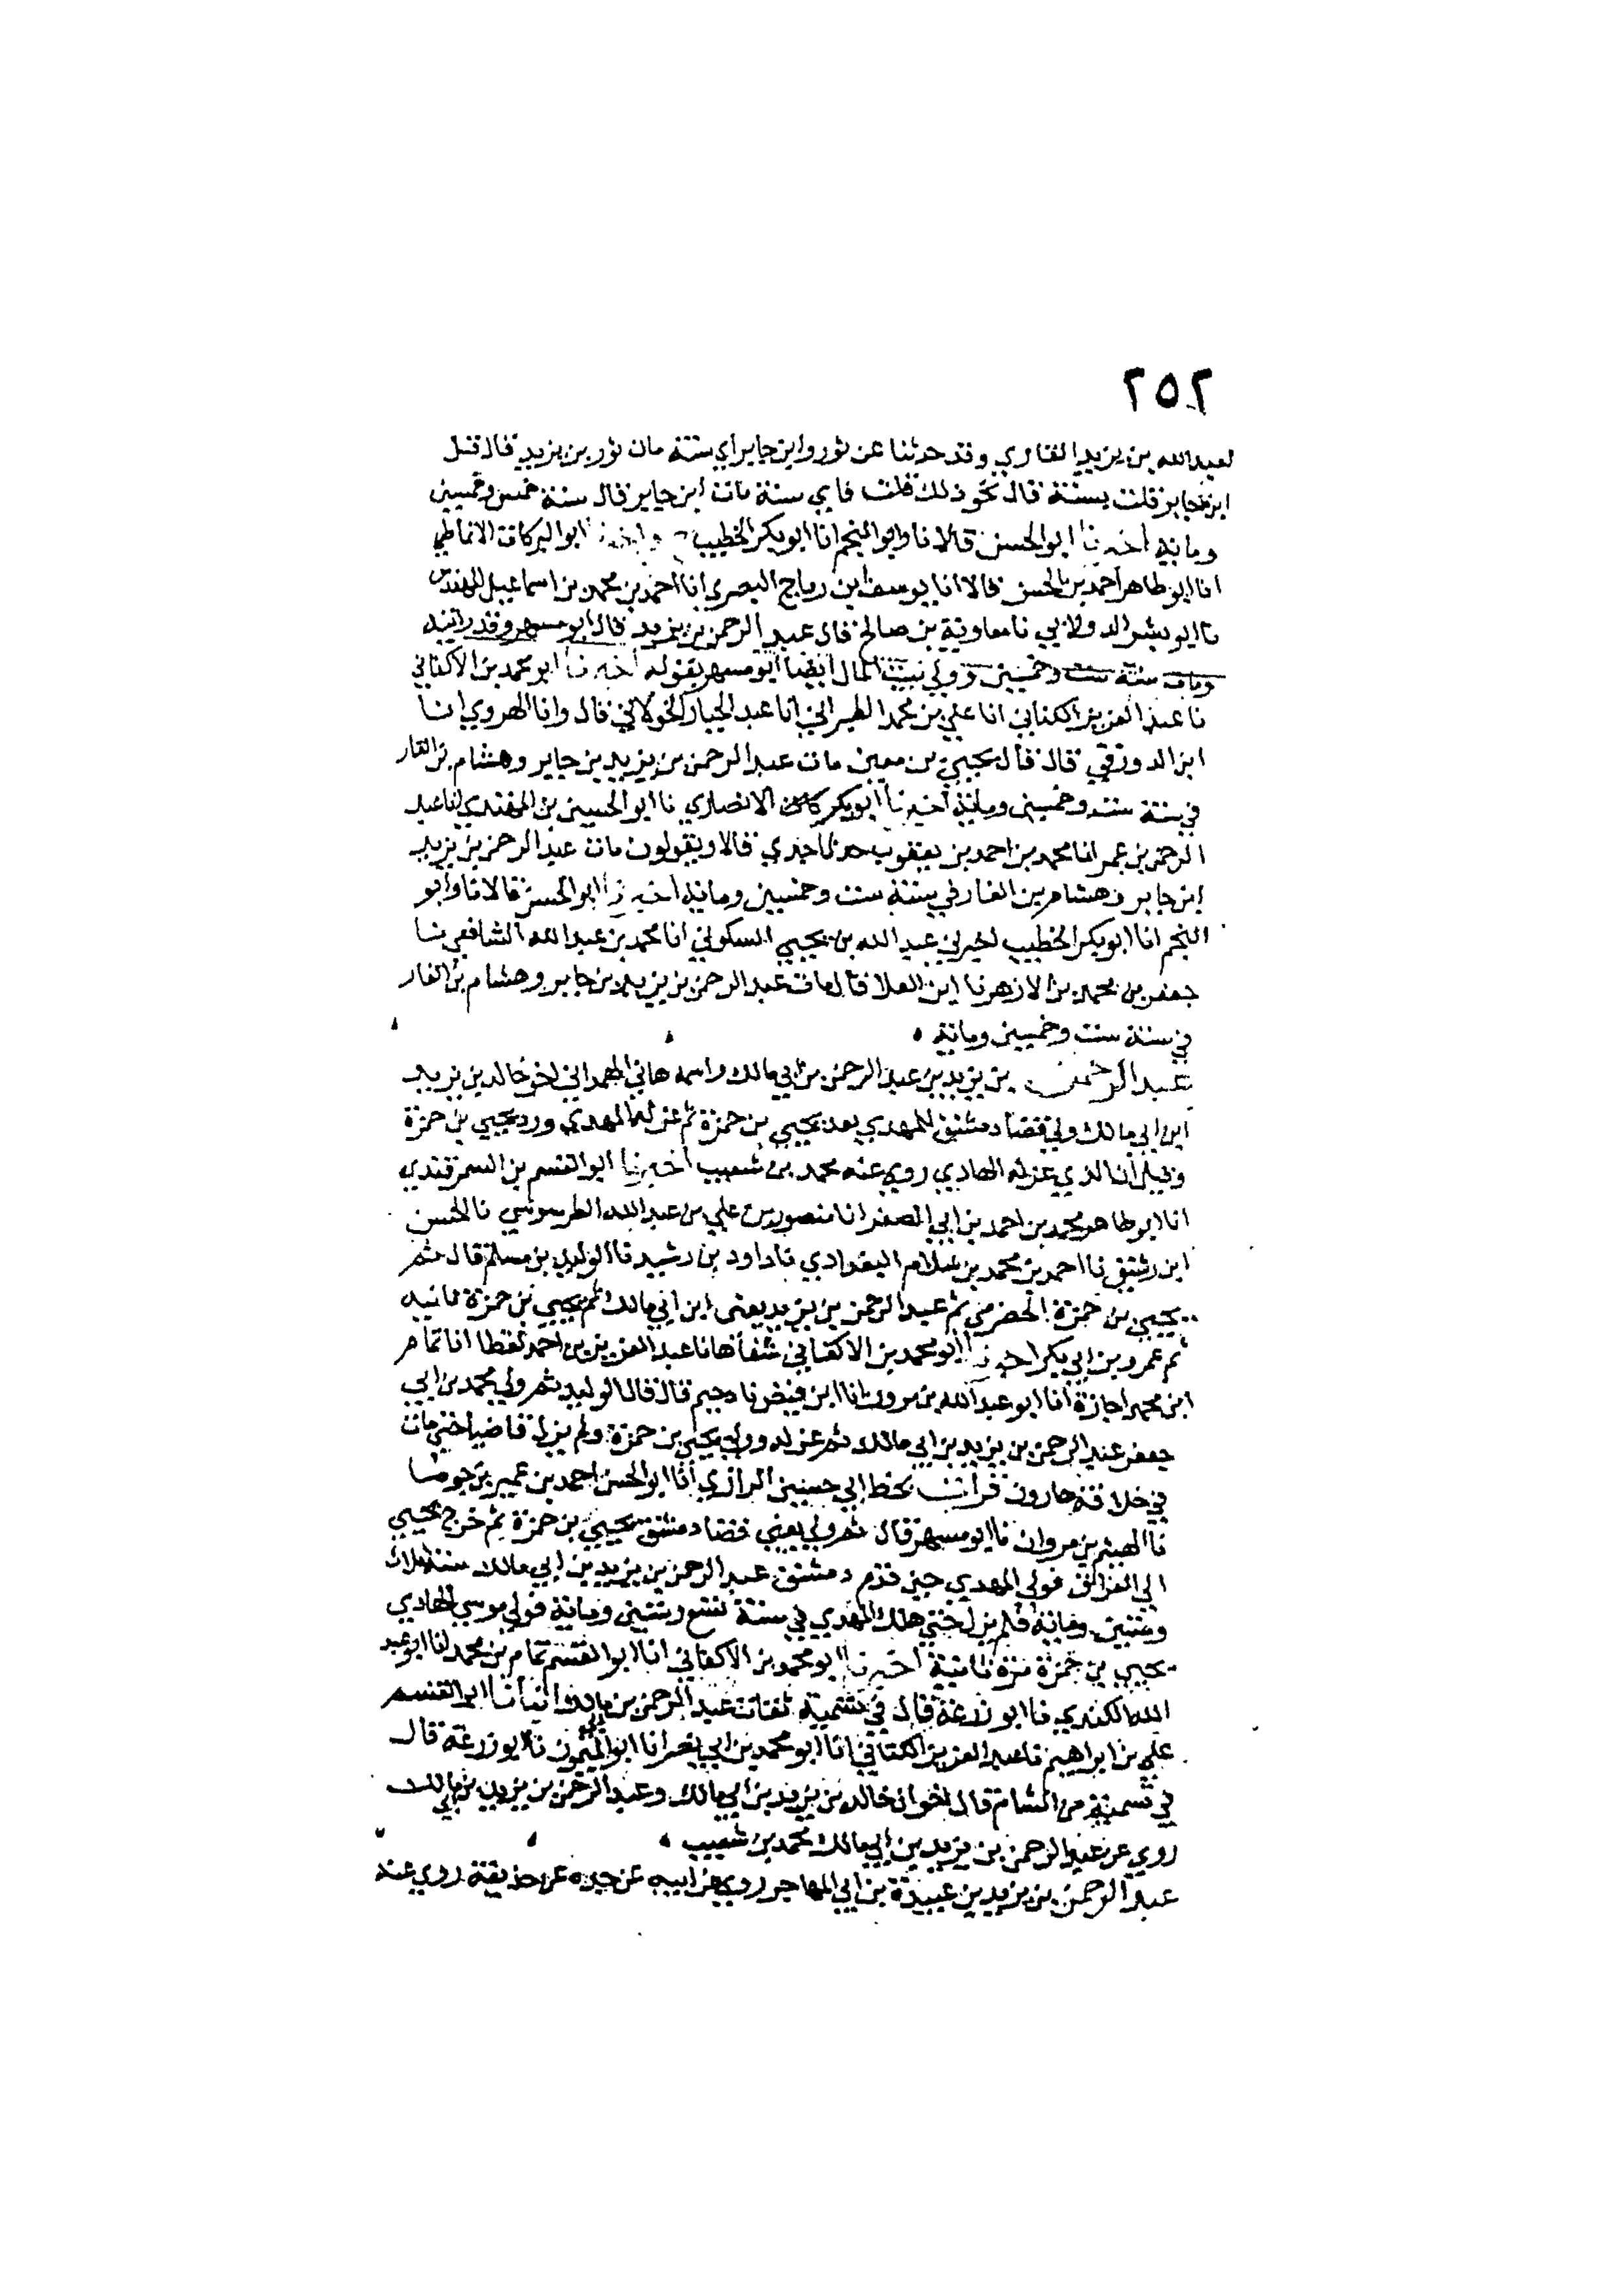 ٢٥٢
لعبدالله بن يزيد القاري وقد حدثنا عن ثور وابن جابر اي سنة مات ثور بن يزيد قال قبل
ابن جابر قلت بسنة قال نحو ذلك قلت فاي سنة مات ابن جابر قال سنة خمس وخمسين
ومايه اخبرنا ابوالحسن قالا نا وابوالنجم انا ابوبكر الخطيب ح واخبرنا ابوالبركات الانماطي
انا ابوطاهر احمد بن الحسن قالا انا يوسف ابن رباح البصري انا احمد بن محمد بن اسماعيل المهندس
نا ابو بشر الدولابي نا معاوية بن صالح قال عبد الرحمن بن يزيد قال ابو مسهر وقد رايته
ومات سنة ست وخمسين وولي بيت المال ايضا ابو مسهر يقوله اخبرنا ابو محمد بن الاكفاني
نا عبد العزيز الكتاني انا علي بن محمد الطبراني انا عبد الجبار الخولاني قال وانا الهروي انا
ابن الدورقي قال قال يحيي بن معين مات عبد الرحمن بن يزيد بن جابر وهشام بن الغار
في سنة ست وخمسين وماية اخبرنا ابوبكر الانصاري نا ابو الحسين بن المهتدي انا عبد
الرحمن بن عمر انا محمد بن احمد بن يعقوب حدثنا جدي قالا ويقولون مات عبد الرحمن بن يزيد
ابن جابر وهشام بن الغار في سنة ست وخمسين وماية اخبرنا ابوالحسن قالا نا وابو
النجم انا ابوبكر الخطيب اخبرني عبد الله بن يحيي السكوني انا محمد بن عبد الله الشافعي نا
جعفر بن محمد بن الازهر نا ابن الغلا قال مات عبد الرحمن بن يزيد بن جابر وهشام بن الغار
في سنة ست وخمسين وماية
عبد الرحمن بن يزيد بن عبد الرحمن بن ابي مالك واسمه هاني الهمداني اخو خالد بن يزيد
ابن ابي مالك ولي قضا دمشق للمهدي بعد يحيي بن حمزة ثم عزله المهدي ورد يحيي بن حمزة
وقيل ان الذي عزله الهادي روي عنه محمد بن شعيب اخبرنا ابو القسم بن السمرقندي
انا ابوطاهر محمد بن احمد بن ابي الصقر انا منصور بن علي بن عبد الله الطرسوسي نا الحسن
ابن رشيق نا احمد بن محمد بن سلام البغدادي نا داود بن رشيد نا الوليد بن مسلم قال ثم
يحيي بن حمزة الحضرمي ثم عبد الرحمن بن يزيد يعني ابن ابي مالك ثم يحيي بن حمزة ثانيه
ثم عمرو بن ابي بكر اخبرنا ابو محمد بن الاكفاني شفاها نا عبد العزيز بن احمد لفظا انا تمام
ابن محمد اجازة انا ابو عبد الله بن مروان انا ابن فيض نا دحيم قال قال الوليد ثم ولي محمد بن ابي
جعفر عبد الرحمن بن يزيد بن ابي مالك ثم عزله وولي يحيي بن حمزة ولم يزل قاضيا حتي مات
في خلافة هارون قرات بخط ابي حسين الرازي انا ابو الحسن احمد بن عمير بن جوصا
نا الهيثم بن مروان نا ابو مسهر قال ثم ولي يعني قضا دمشق يحيي بن حمزة ثم خرج يحيي
الي العراق فولي المهدي حين قدم دمشق عبد الرحمن بن يزيد بن ابي مالك سنة ثلاث
وستين وماية فلم يزل حتي هلك المهدي في سنة تسع وستين وماية فولي موسي الهادي
يحيي بن حمزة مرة ثانية اخبرنا ابو محمد بن الاكفاني انا ابو القسم تمام بن محمد انا ابو عبد
الله الكندي نا ابو زرعة قال في تسمية ثقات عبد الرحمن بن انبانا ابو القسم
علي بن ابراهيم نا عبد العزيز الكتاني انا ابو محمد بن ابي نصر انا ابو الميمون نا ابو زرعة قال
في تسمية من الشام قال اخوان خالد بن يزيد بن ابي مالك وعبد الرحمن بن يزيد بن ابي مالك
روي عن عبد الرحمن بن يزيد بن ابي مالك محمد بن شعيب
عبد الرحمن بن يزيد بن عبيدة بن ابي المهاجر روي عن ابيه عن جده عن حذيفة روي عنه